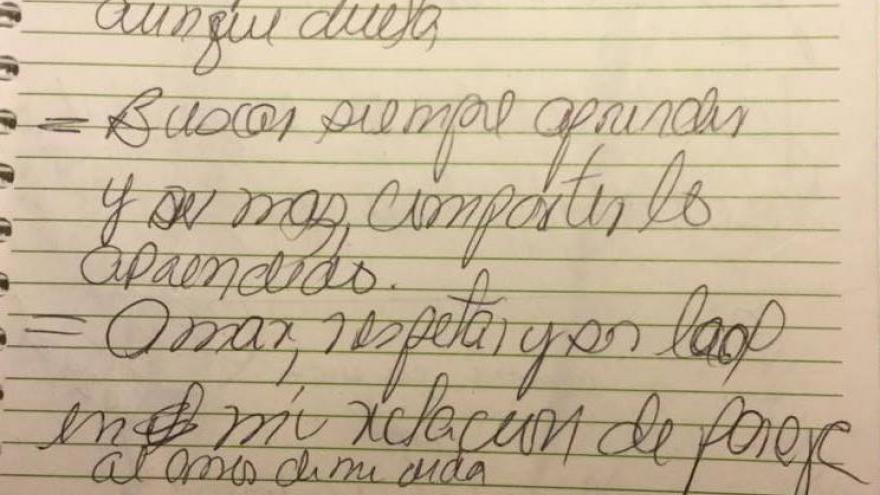 aunque duela,
= Buscar siempre aprender
y ser mas, compartir lo
aprendido.
= Amar, respetar y ser leal
en mi relacion de pareja
al amor de mi vida